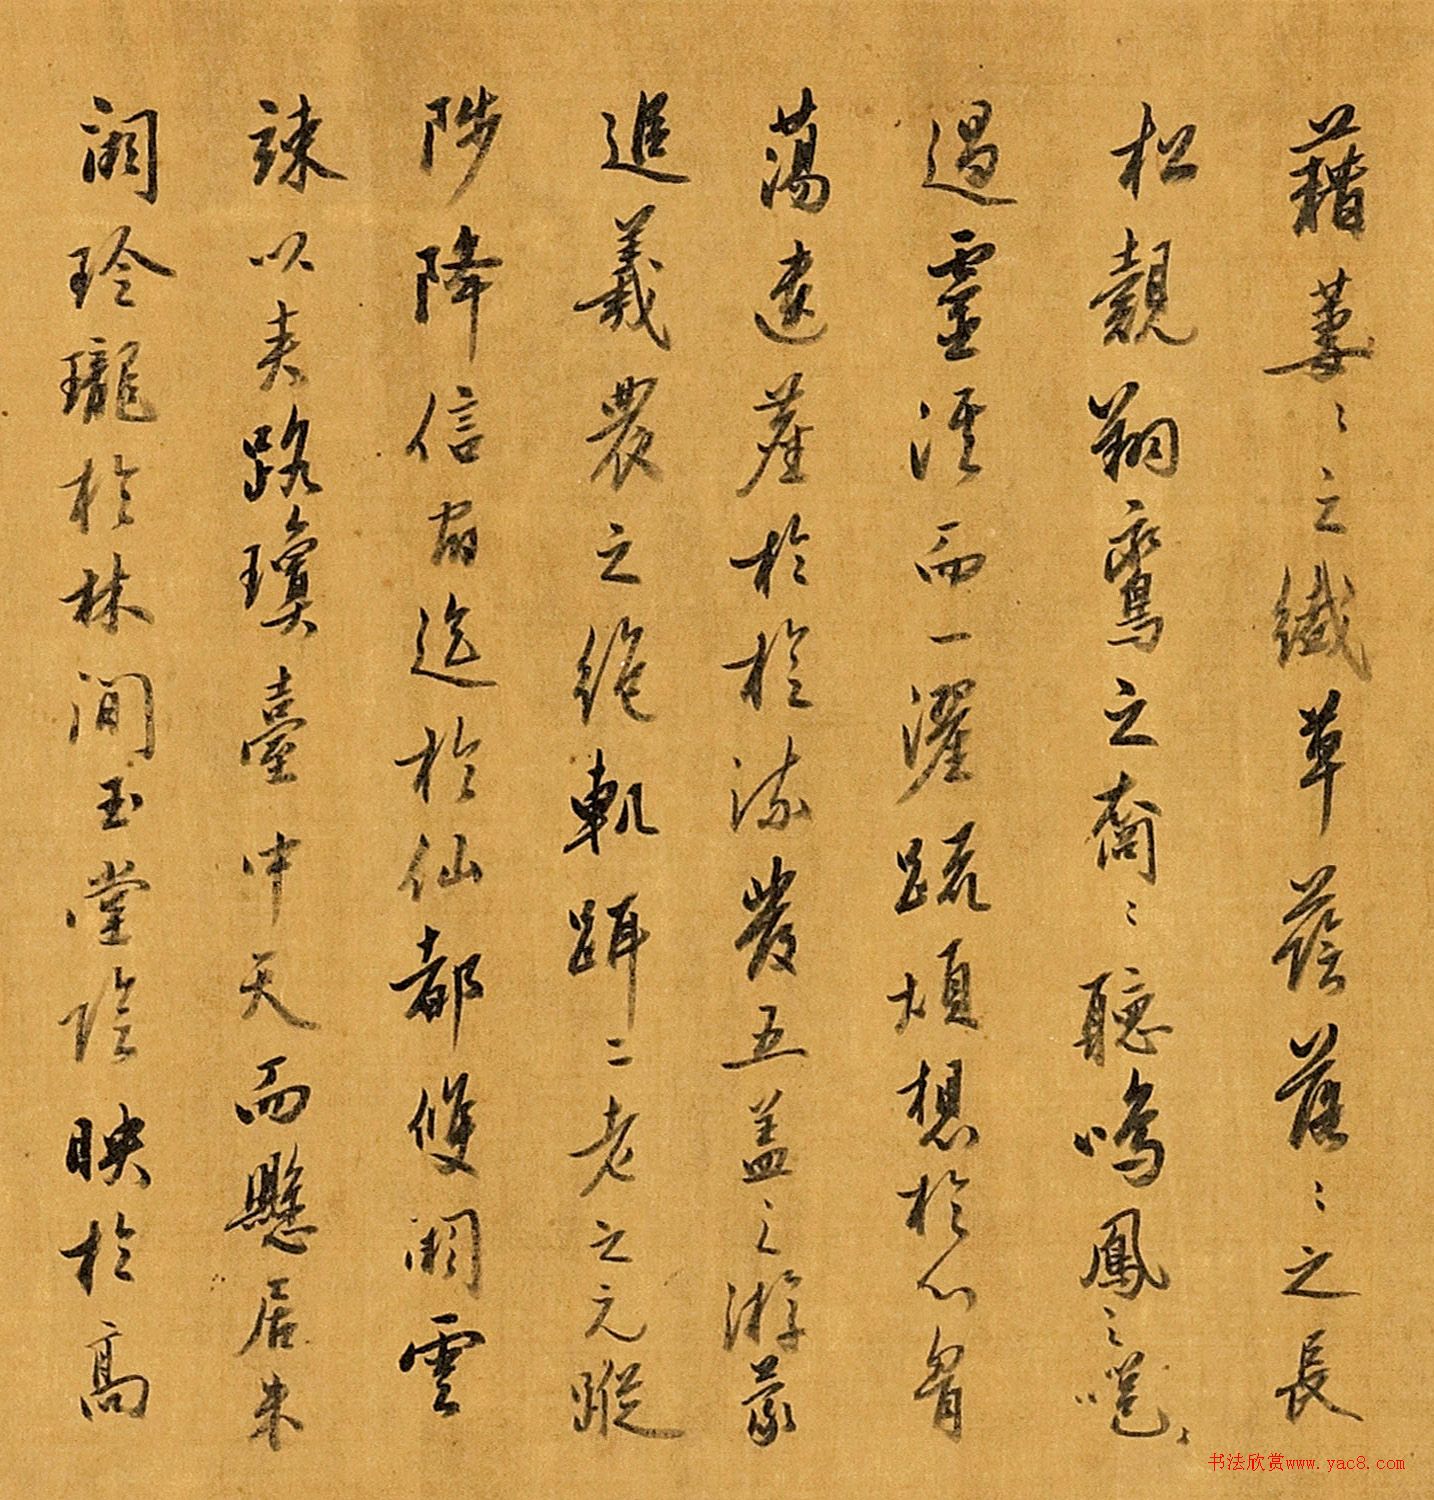 藉萋〻之纖草蔭落〻之長
松覿翔鸞之裔〻聽鳴鳳之嗈〻
過靈溪而一濯疏煩想於心胷
蕩遺塵於於流發五盖之游蒙
追羲農之絶軌躡二老之元蹤
陟降信宿迄於仙都雙闕雲
竦以夾路瓊臺中天而懸居朱
闕玲瓏於林間玉堂陰映於高
书法欣赏www.yac8.com